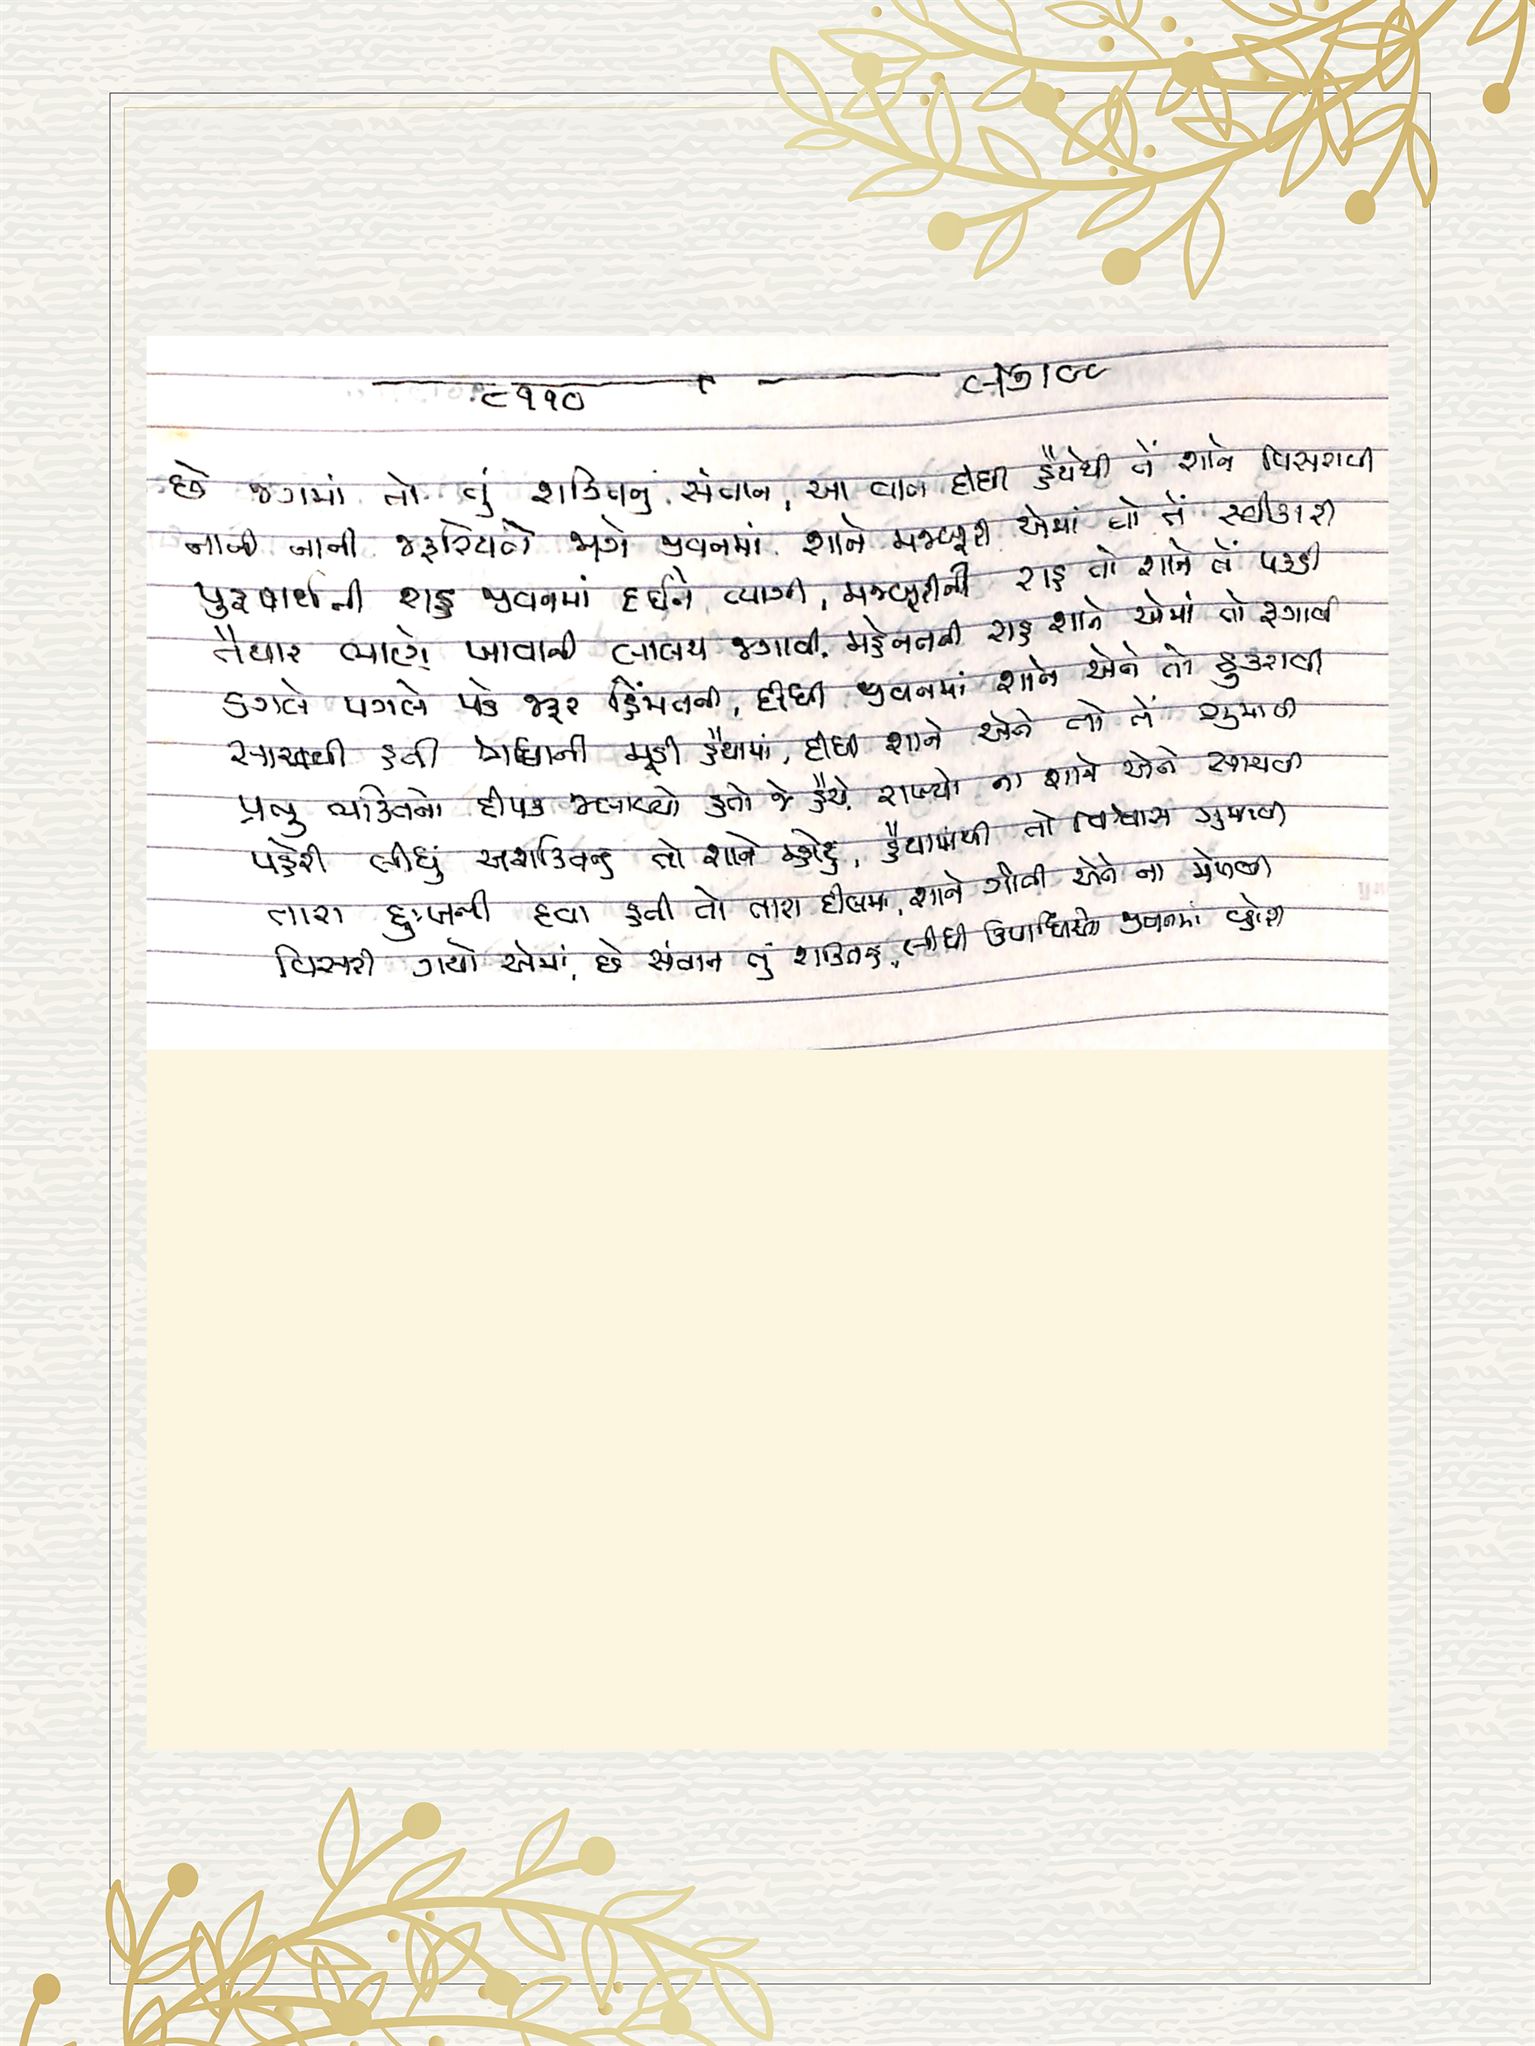 ૮૧૧૦
છે જગમાં તો તું શક્તિનું સંતાન, આ વાત દીધી હૈયેથી તેં શાને વિસરાવી
નાની નાની જરૂરિયાતો માગે જીવનમાં શાને મજબૂરી એમાં તો તેં સ્વીકારી
પુરુષાર્થની રાહ જીવનમાં દઈને ત્યાગી, મજબૂરીની રાહ તો શાને તેં પકડી
તૈયાર ભાણે ખાવાની લાલચ જગાવી, મહેનતની રાહ શાને એમાં તો ફગાવી
ડગલે પગલે પડે જરૂર હિંમતની, દીધી જીવનમાં શાને એને તો ઠુકરાવી
સાચવી હતી મૂડી હૈયામાં, દીધી શાને એને તો તેં ગુમાવી
પ્રભુ ભક્તિનો દીપક જલાવ્યો હતો જે હૈયે, રાખ્યો ના શાને એને સાચવી
પહેરી લીધું અશક્તિનું તો શાને મહોરું, હૈયામાંથી તો વિશ્વાસ ગુમાવી
તારા દુઃખની દવા હતી તો તારા દીલમાં, શાને ગોતી એને ના મેળવી
વિસરી ગયો એમાં, છે સંતાન તું શક્તિનું, લીધી ઉપાધિઓ જીવનમાં વ્હોરી